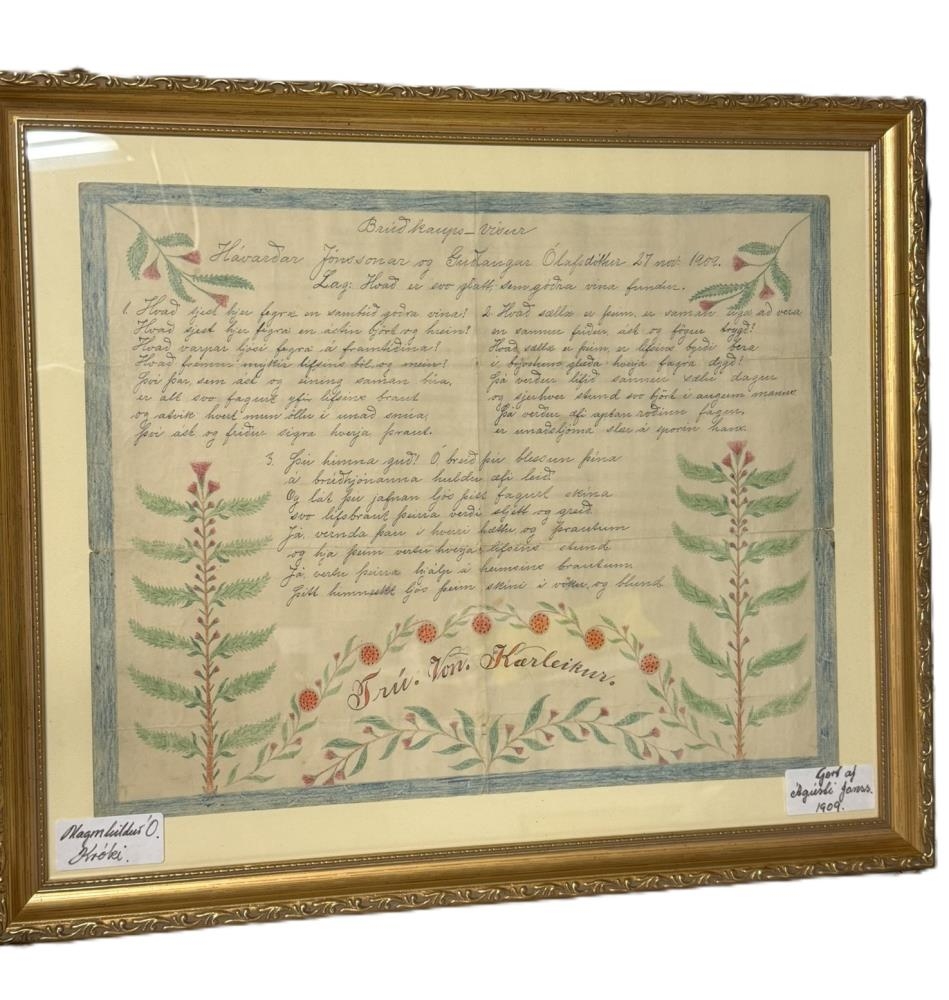 Brúðkaups-vísur
Hávarðar Jónssonar og Guðlaugar Ólafsdóttur 27 nóv. 1909.
Lag: Hvað er svo glatt, sem góðra vina fundur.
1. Hvað sjest hjer fegra en sambúð góðra vina!
Hvað sjest hjer fegra en ástin björt og hrein!
Hvað varpar ljósi fegra á framtíðina!
Hvað fremur mýkir lífsins böl og mein!
Því þar, sem ást og eining saman búa,
er alt svo fagurt yfir lífsins braut
og atvik hvert mun öllu í unað snúa,
því ást og friður sigra hverja þraut.
2. Hvað sælla er þeim, er saman eiga að vera
en sannur friður, ást og fögur trygð!
Hvað sælla er þeim, er lífsins byrði bera
í brjóstum glæða hverja fagra dygð!
Þá verður lífið sannur sælu dagur
og sjerhver stund svo björt í augum manns
Þá verður æfi aptan roðinn fagur,
er unaðsljóma slær á sporin hans.
3. Þú himna guð! Ó, breið þú blessun þína
á brúðhjónanna huldu æfi leið.
Og lát þú jafnan ljós þitt fagurt skína
svo lífsbraut þeirra verði sljett og greið.
Já, vernda þau í hverri hættu og þrautum
og hjá þeim vertu hverja lífsins stund
Já, vertu þeirra hjálp á heimsins brautum.
Þitt himneskt ljós þeim skíni í vöku og blund
Trú. Von. Kærleikur.
Magnhildur Ó.
Króki.
Gert af
Ágústi Jónss.
1909.